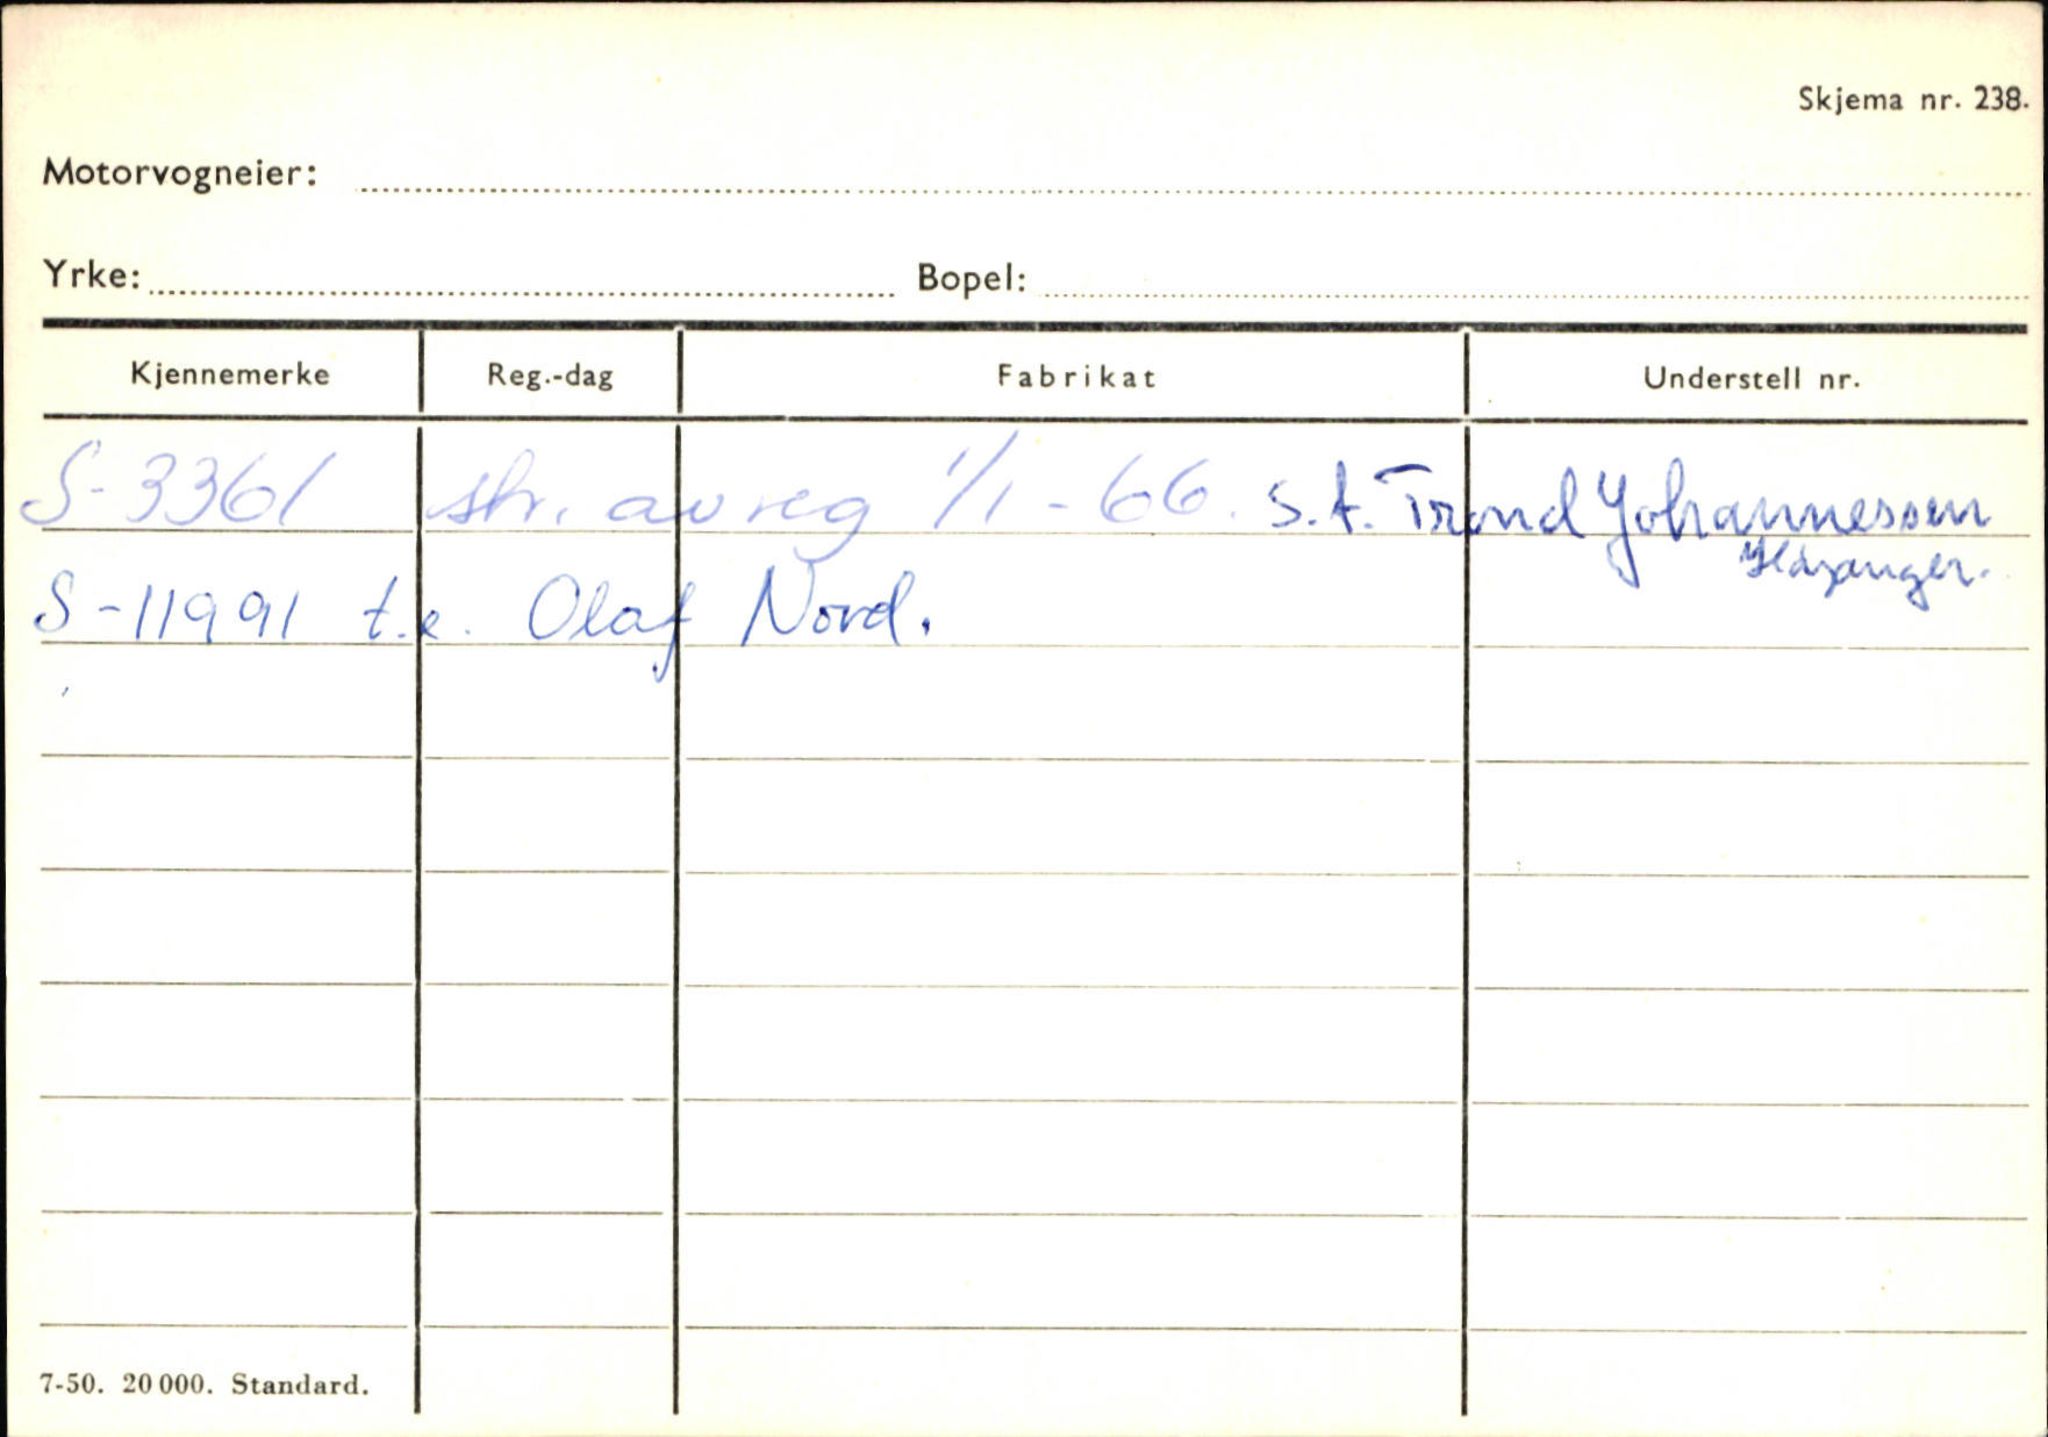 Skjema nr. 238.
Motorvogneier:
Yrke: Bopel:
Kjennemerke Reg.-dag Fabrikat Understell nr.
S-3361 str. avreg 1/1-66. s.t. Trond Johannessen
Høyanger.
S-11991 t.e. Olaf Nord.
7-50. 20 000. Standard.